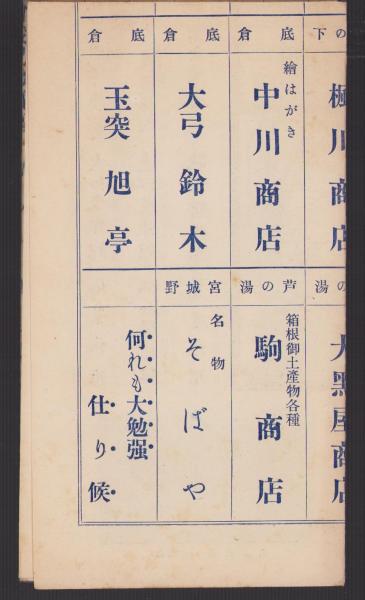 下の
楓川商店
底倉
繪はがき
中川商店
底倉
大弓 鈴木
底倉
玉突 旭亭
湯の
大黑屋商店
芦の湯
箱根御土産物各種
駒商店
宮城野
名物
そばや
何れも大勉强
仕り候